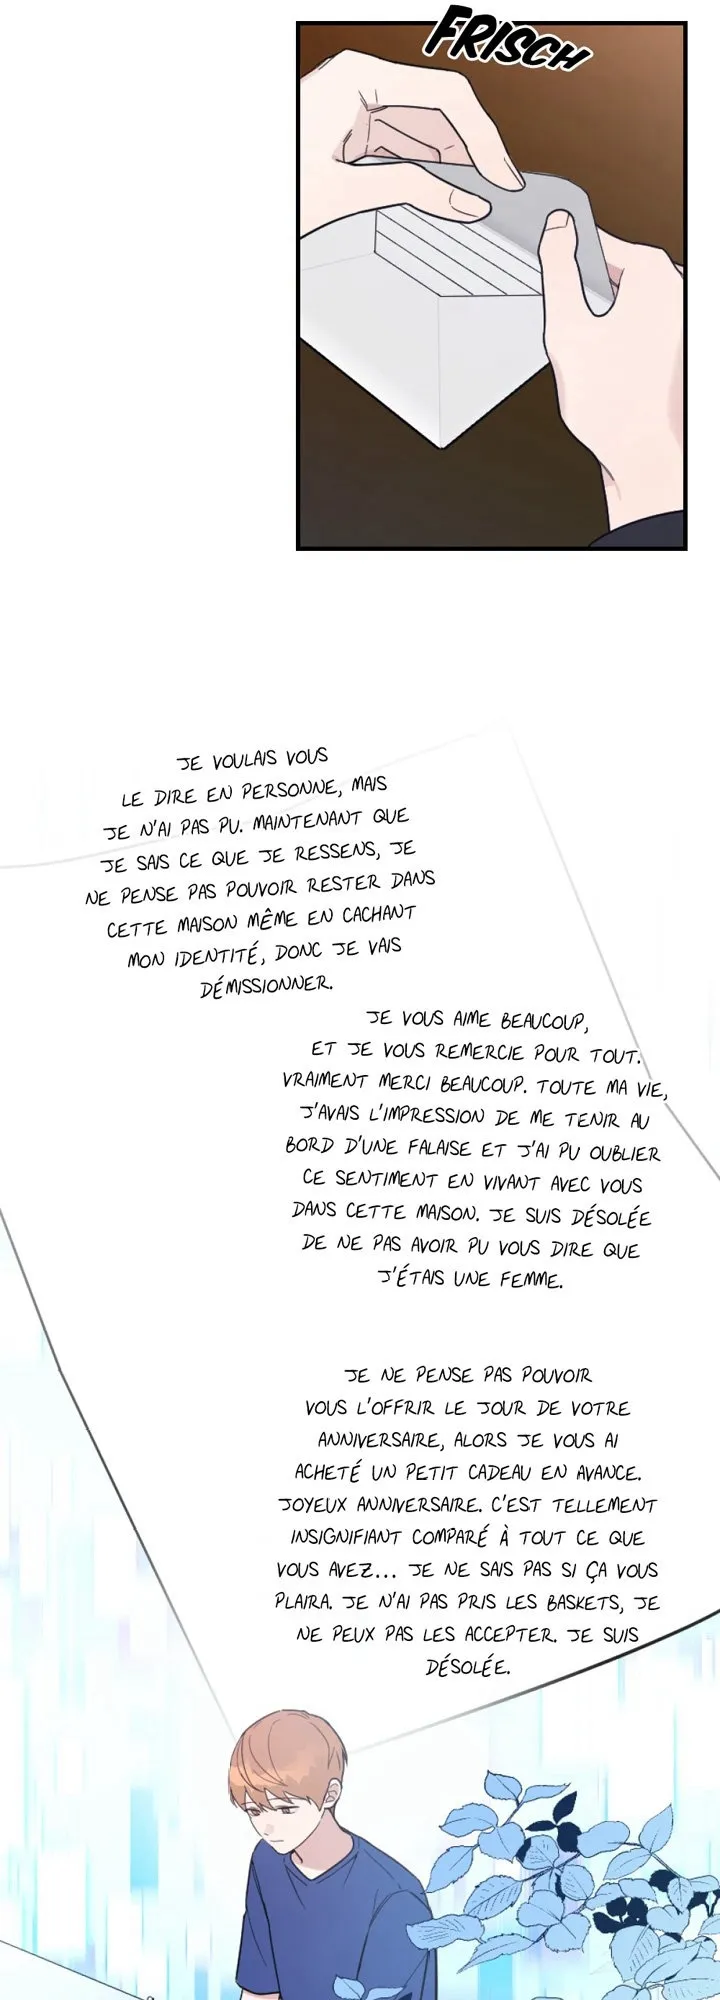 FRISCH
JE VOULAIS VOUS
LE DIRE EN PERSONNE, MAIS
JE N'AI PAS PU. MAINTENANT QUE
JE SAIS CE QUE JE RESSENS, JE
NE PENSE PAS POUVOIR RESTER DANS
CETTE MAISON MÊME EN CACHANT
MON IDENTITÉ, DONC JE VAIS
DÉMISSIONNER.
JE VOUS AIME BEAUCOUP,
ET JE VOUS REMERCIE POUR TOUT.
VRAIMENT MERCI BEAUCOUP. TOUTE MA VIE,
J'AVAIS L'IMPRESSION DE ME TENIR AU
BORD D'UNE FALAISE ET J'AI PU OUBLIER
CE SENTIMENT EN VIVANT AVEC VOUS
DANS CETTE MAISON. JE SUIS DÉSOLÉE
DE NE PAS AVOIR PU VOUS DIRE QUE
J'ÉTAIS UNE FEMME.
JE NE PENSE PAS POUVOIR
VOUS L'OFFRIR LE JOUR DE VOTRE
ANNIVERSAIRE, ALORS JE VOUS AI
ACHETÉ UN PETIT CADEAU EN AVANCE.
JOYEUX ANNIVERSAIRE. C'EST TELLEMENT
INSIGNIFIANT COMPARÉ À TOUT CE QUE
VOUS AVEZ... JE NE SAIS PAS SI ÇA VOUS
PLAIRA. JE N'AI PAS PRIS LES BASKETS, JE
NE PEUX PAS LES ACCEPTER. JE SUIS
DÉSOLÉE.